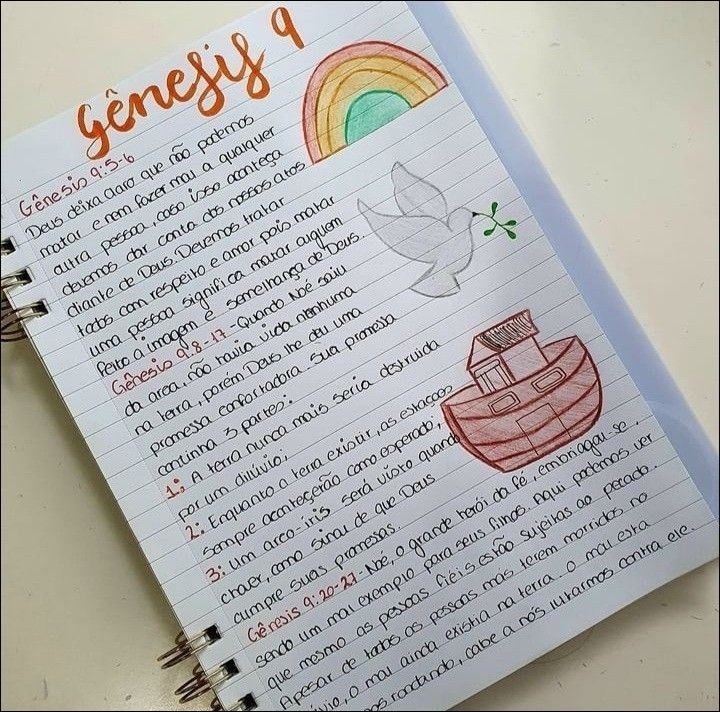 Gênesis 9
Gênesis 9:5-6
Deus deixa claro que não podemos
matar e nem fazer mal a qualquer
outra pessoa, caso isso aconteça
devemos dar conta dos nossos atos
diante de Deus. Devemos tratar
todos com respeito e amor pois matar
uma pessoa significa matar alguem
feito a imagem e semelhança de Deus.
Gênesis 9:8-17 - Quando Noé saiu
da arca, não havia vida nenhuma
na terra, porém Deus lhe deu uma
promessa confortadora. Sua promessa
continha 3 partes:
1: A terra nunca mais seria destruída
por um dilúvio;
2: Enquanto a terra existir, as estações
sempre acontecerão como esperado;
3: um arco-íris será visto quando
chover, como sinal de que Deus
cumpre suas promessas.
Gênesis 9:20-27 - Noé, o grande herói da fé, embriagou-se,
sendo um mal exemplo para seus filhos. Aqui podemos ver
que mesmo as pessoas fiéis estão sujeitas ao pecado.
Apesar de todas as pessoas más terem morrido no
lúvio, o mal ainda existia na terra. O mal esta
nos rondando, cabe a nós lutarmos contra ele.